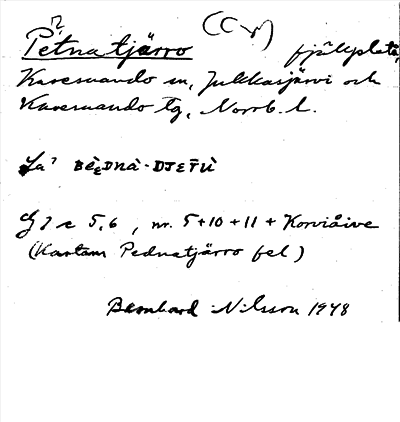 Petnatjärro fjällplatå,
Karesuando sn, Jukkasjärvi och
Karesuando tg, Norrb. l.
La? BÈ̀DNÀ-DJEr̄Ù
5,6, nr. 5+10+11+ Korviåive
(Kartans Pednatjärro fel)
Bernhard Nilsson 1948